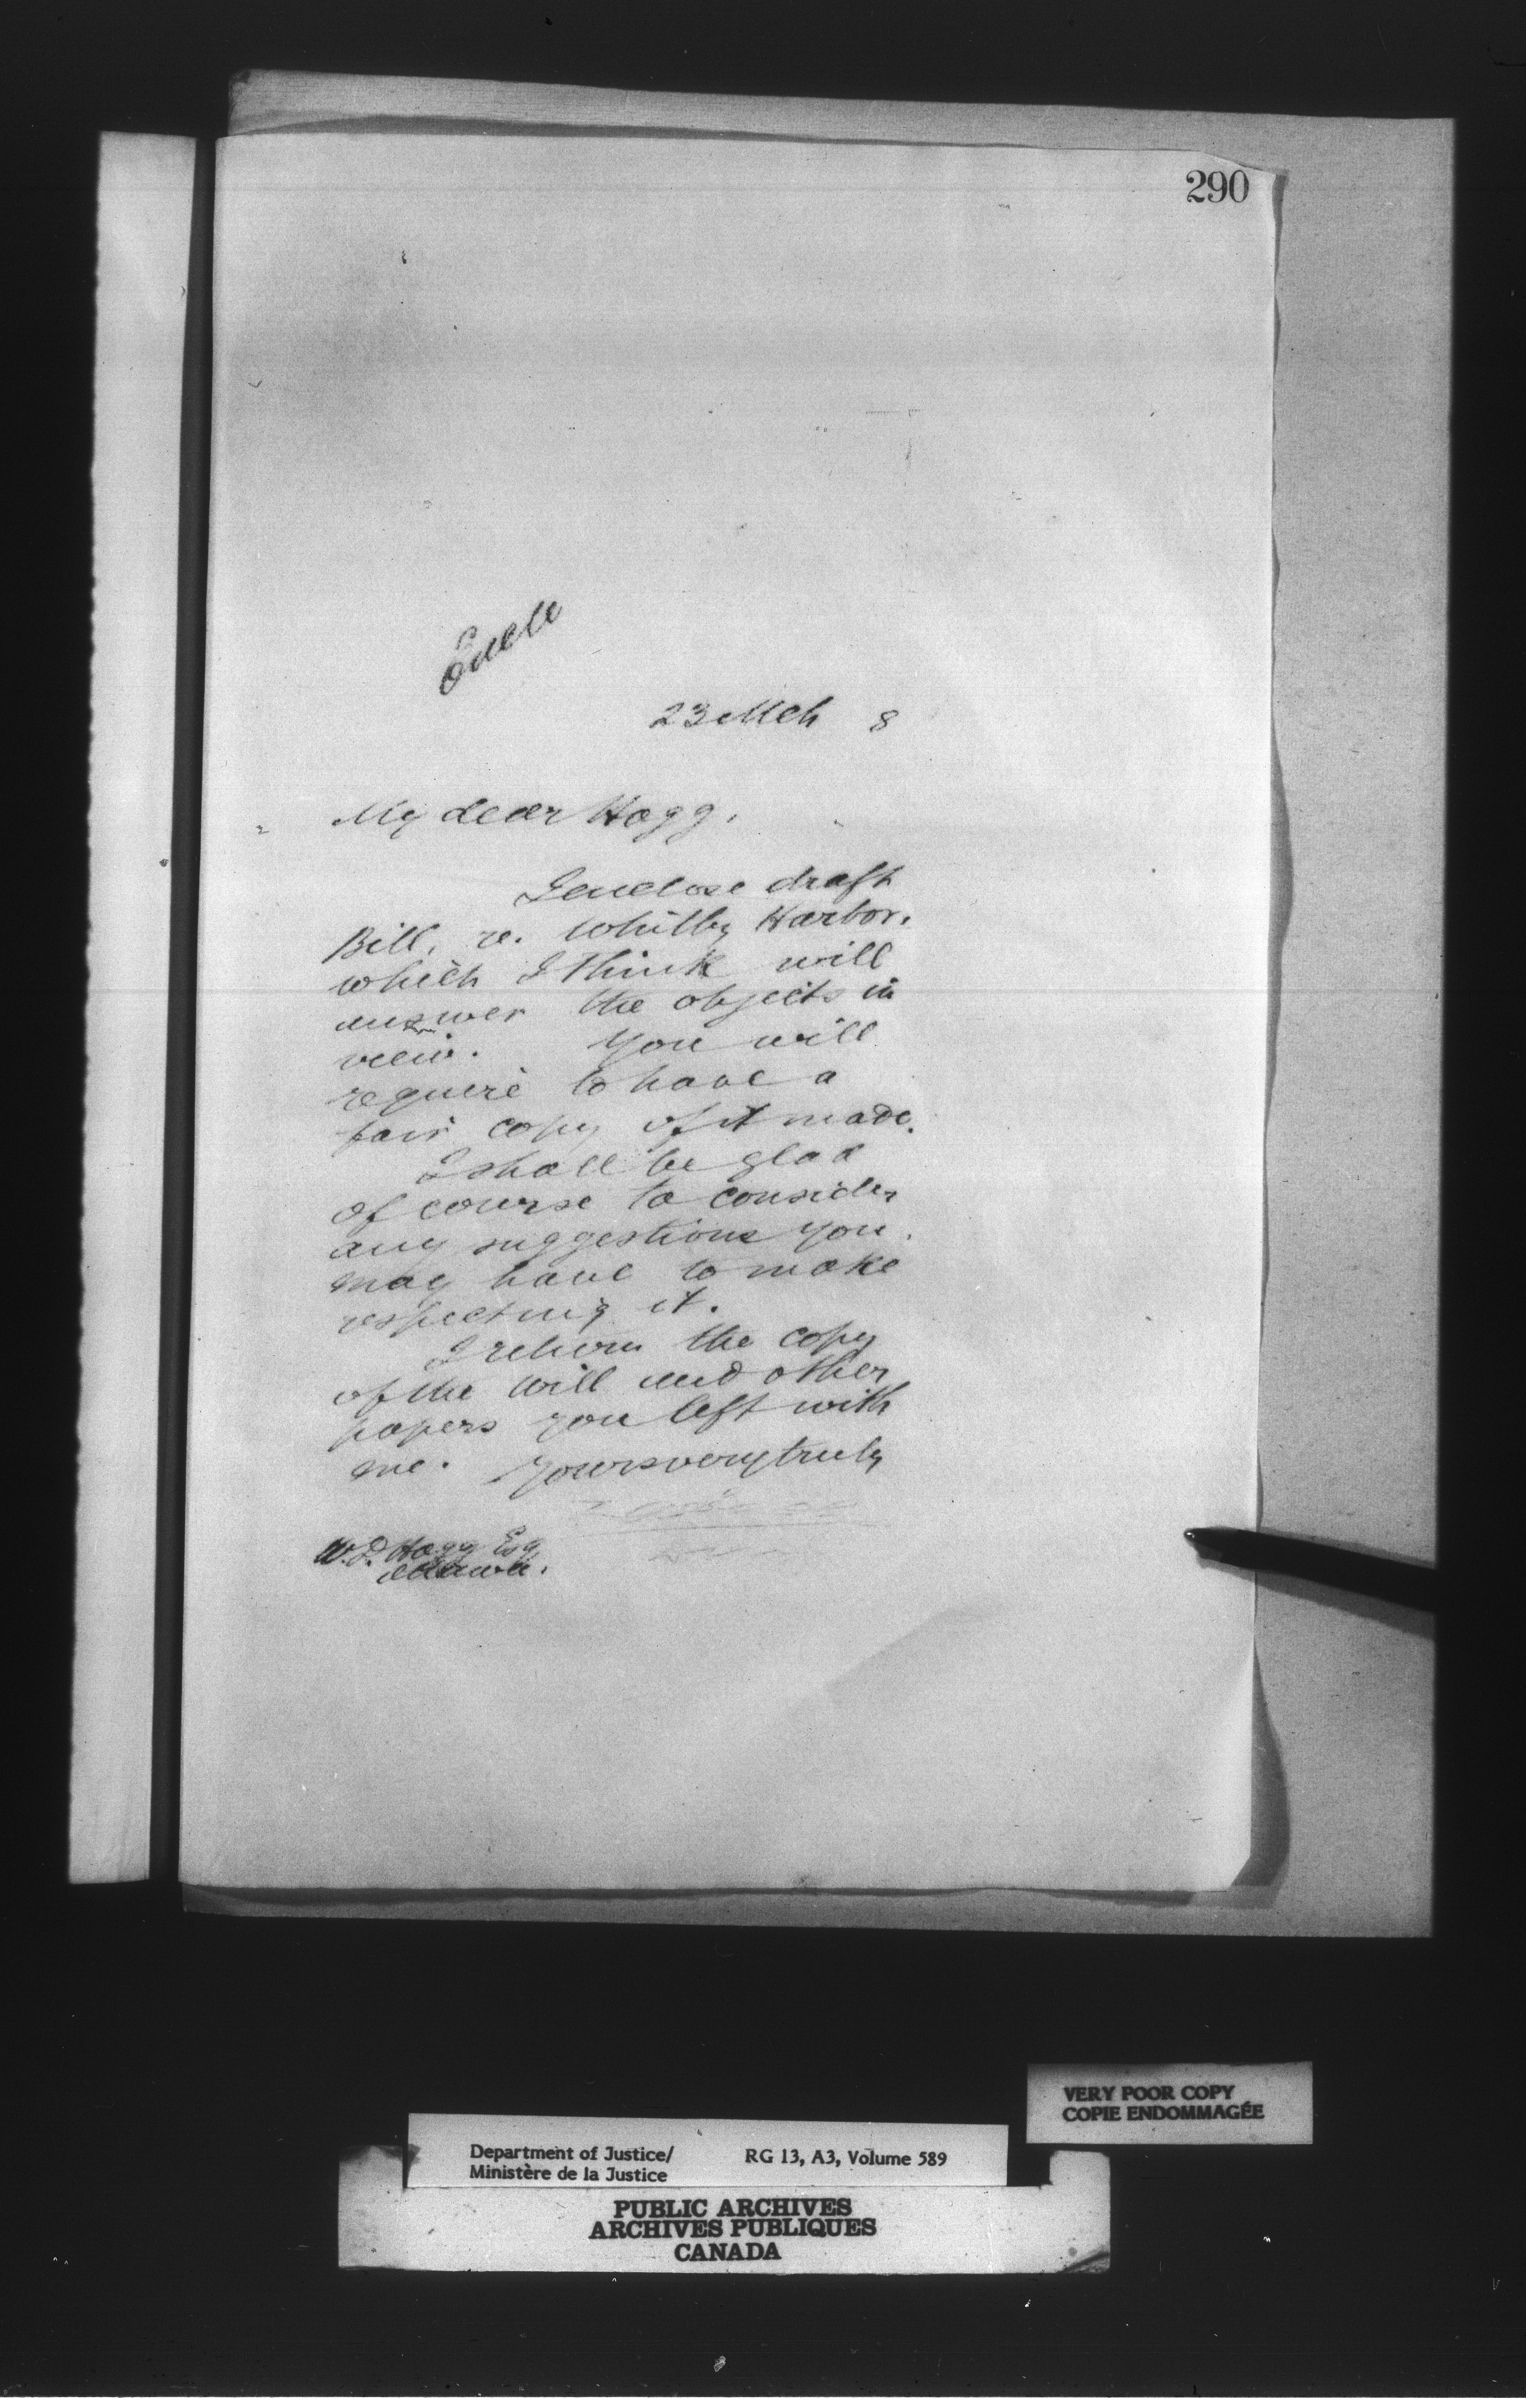 290
Encls
23 Mch 8
My dear Hogg,
I enclose draft
Bill, re. Whitby Harbor.
which I think will
answer the objects in
view. You will
require to have a
fair copy of it made.
I shall be glad
of course to consider
any suggestions you
may have to make
respecting it.
I return the copy
of the will and other
papers you left with
me. Yours very truly
W.D. Hogg Esq
Ottawa.
VERY POOR COPY
COPIE ENDOMMAGÉE
Department of Justice/ RG 13, A3, Volume 589
Ministère de la Justice
PUBLIC ARCHIVES
ARCHIVES PUBLIQUES
CANADA